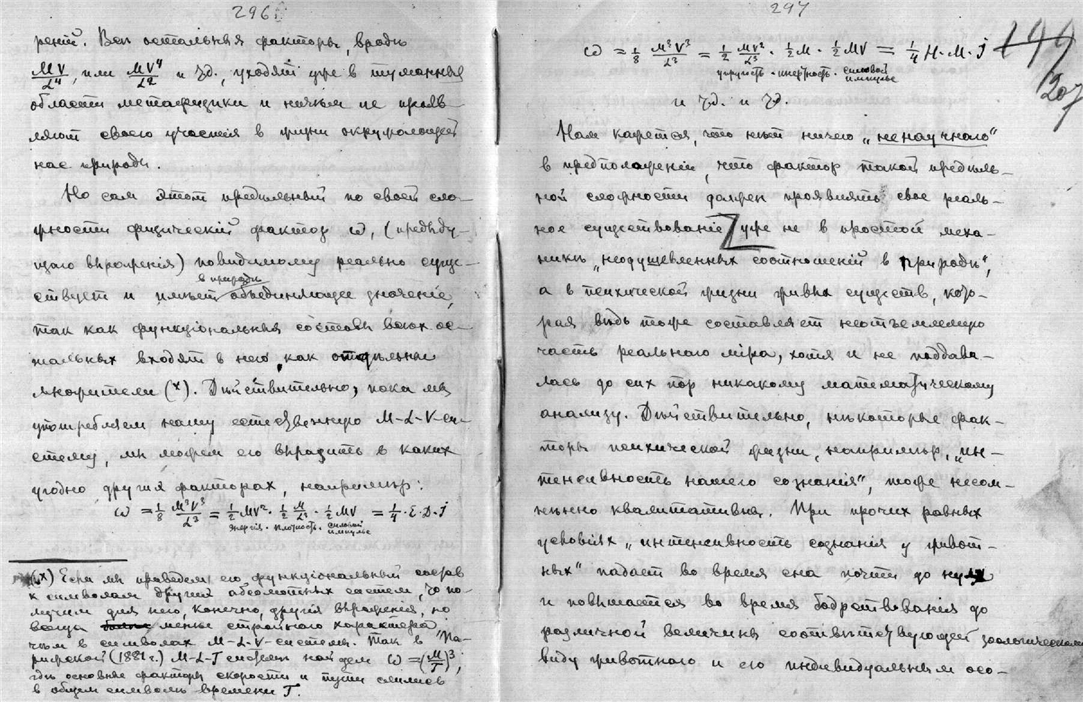 296
рений. Все остальныя факторы, вродѣ
MV/L⁴, или MV⁴/L² и т.д., уходят уже в туманныя
области метафизики и ничѣм не прояв-
ляют своего участія в жизни окружающей
нас природы.
Но сам этот предѣльный по своей сло-
жности физический фактор ω, (предъиду-
щаго выраженія) повидимому реально суще-
ствует и имѣет в природѣ объединяющее значеніе,
так как функціональныя составы всѣх ос-
тальных входят в него, как отдѣльные
множители (x). Дѣйствительно, пока мы
употребляем нашу естественную M-L-V-си-
стему, мы можем его выразить в каких
угодно других факторах, напримѣр:
ω = 1/8 M³V³/L³ = 1/2 MV² · 1/2 M/L³ · 1/2 MV = 1/4 · E · D · J
энергія · плотность · силовой импульс
(x) Если мы приведем его функціональный состав
к символам других абсолютных систем, то по-
лучим для него, конечно, другія выраженія, но
всегда менѣе стройнаго характера
чѣм в символах M-L-V-системы. Так в Па-
рижской (1881 г.) M-L-T системѣ найдем ω = (M/T)³,
гдѣ основные факторы скорости и пути слились
в общем символѣ времени T.
297
199
207
ω = 1/8 M³V³/L³ = 1/2 MV²/L³ · 1/2 M · 1/2 MV = 1/4 H · M · J
упругость · инертность · силовой импульс
и т.д. и т.д.
Нам кажется, что нѣт ничего „ненаучного"
в предположеніи, что фактор такой предѣль-
ной сложности должен проявлять свое реаль-
ное существованіе уже не в простой меха-
никѣ „неодушевленных соотношений в природѣ",
а в психической жизни живых существ, кото-
рая вѣдь тоже составляет неотъемлемую
часть реального міра, хотя и не поддава-
лась до сих пор никакому математическому
анализу. Дѣйствительно, нѣкоторые фак-
торы психической жизни, напримѣр, „ин-
тенсивность нашего сознанія", тоже несом-
нѣнно квалитативны. При прочих равных
условіях „интенсивность сознанія у живот-
ных" падает во время сна почти до нуля
и повышается во время бодрствования до
различной величины соотвѣтствующей зоологическому
виду животного и его индивидуальным осо-